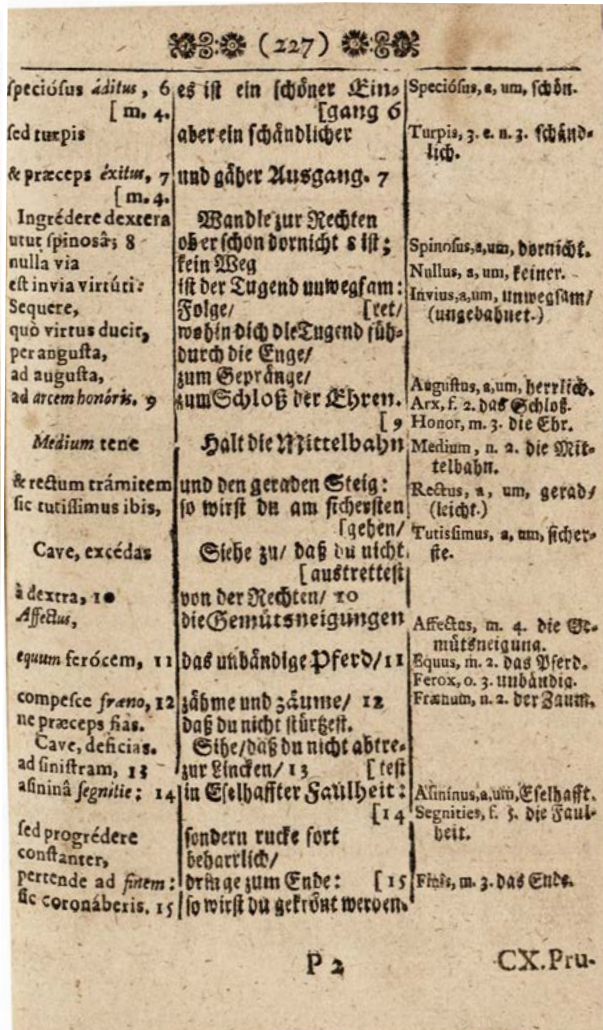 (227)
speciósus áditus, 6
[m. 4.
sed turpis
& præceps éxitus, 7
[m. 4.
Ingrédere dextera
utut spinosâ; 8
nulla via
est invia virtúti:
Sequere,
quò virtus ducit,
per angusta,
ad augusta,
ad arcem honóris. 9
Medium tene
& rectum trámitem
sic tutissimus ibis,
Cave, excédas
à dextra, 10
Affectus,
equum ferócem, 11
compesce fræno, 12
ne præceps fias.
Cave, deficias.
ad sinistram, 13
asininâ segnitie: 14
sed progrédere
constanter,
pertende ad finem:
sic coronáberis. 15
es ist ein schöner Ein-
[gang 6
aber ein schändlicher
und gäher Ausgang. 7
Wandle zur Rechten
ob er schon dornicht 8 ist;
kein Weg
ist der Tugend unwegsam:
Folge/ [ret/
wohin dich die Tugend füh-
durch die Enge/
zum Gepränge/
zum Schloß der Ehren.
[9
Halt die Mittelbahn
und den geraden Steig:
so wirst du am sichersten
[gehen/
Siehe zu/ daß du nicht
[austrettest
von der Rechten/ 10
die Gemütsneigungen
das unbändige Pferd/ 11
zähme und zäume/ 12
daß du nicht stürtzest.
Sihe/ daß du nicht abtre-
zur Lincken/ 13 [test
in Eselhaffter Faulheit:
[14
sondern rucke fort
beharrlich/
dringe zum Ende: [15
so wirst du gekrönt werden.
Speciósus, a, um, schön.
Turpis, 3. e. n. 3. schänd-
lich.
Spinosus, a, um, dornicht.
Nullus, a, um, keiner.
Invius, a, um, unwegsam/
(ungebahnet.)
Augustus, a, um, herrlich.
Arx, f. 2. das Schloß.
Honor, m. 3. die Ehr.
Medium, n. 2. die Mit-
telbahn.
Rectus, a, um, gerad/
(leicht.)
Tutissimus, a, um, sicher-
ste.
Affectus, m. 4. die Ge-
mütsneigung.
Equus, m. 2. das Pferd.
Ferox, o. 3. unbändig.
Frænum, n. 2. der Zaum.
Asininus, a, um, Eselhafft.
Segnities, f. 5. die Faul-
heit.
Finis, m. 3. das Ende.
P 2
CX. Pru-